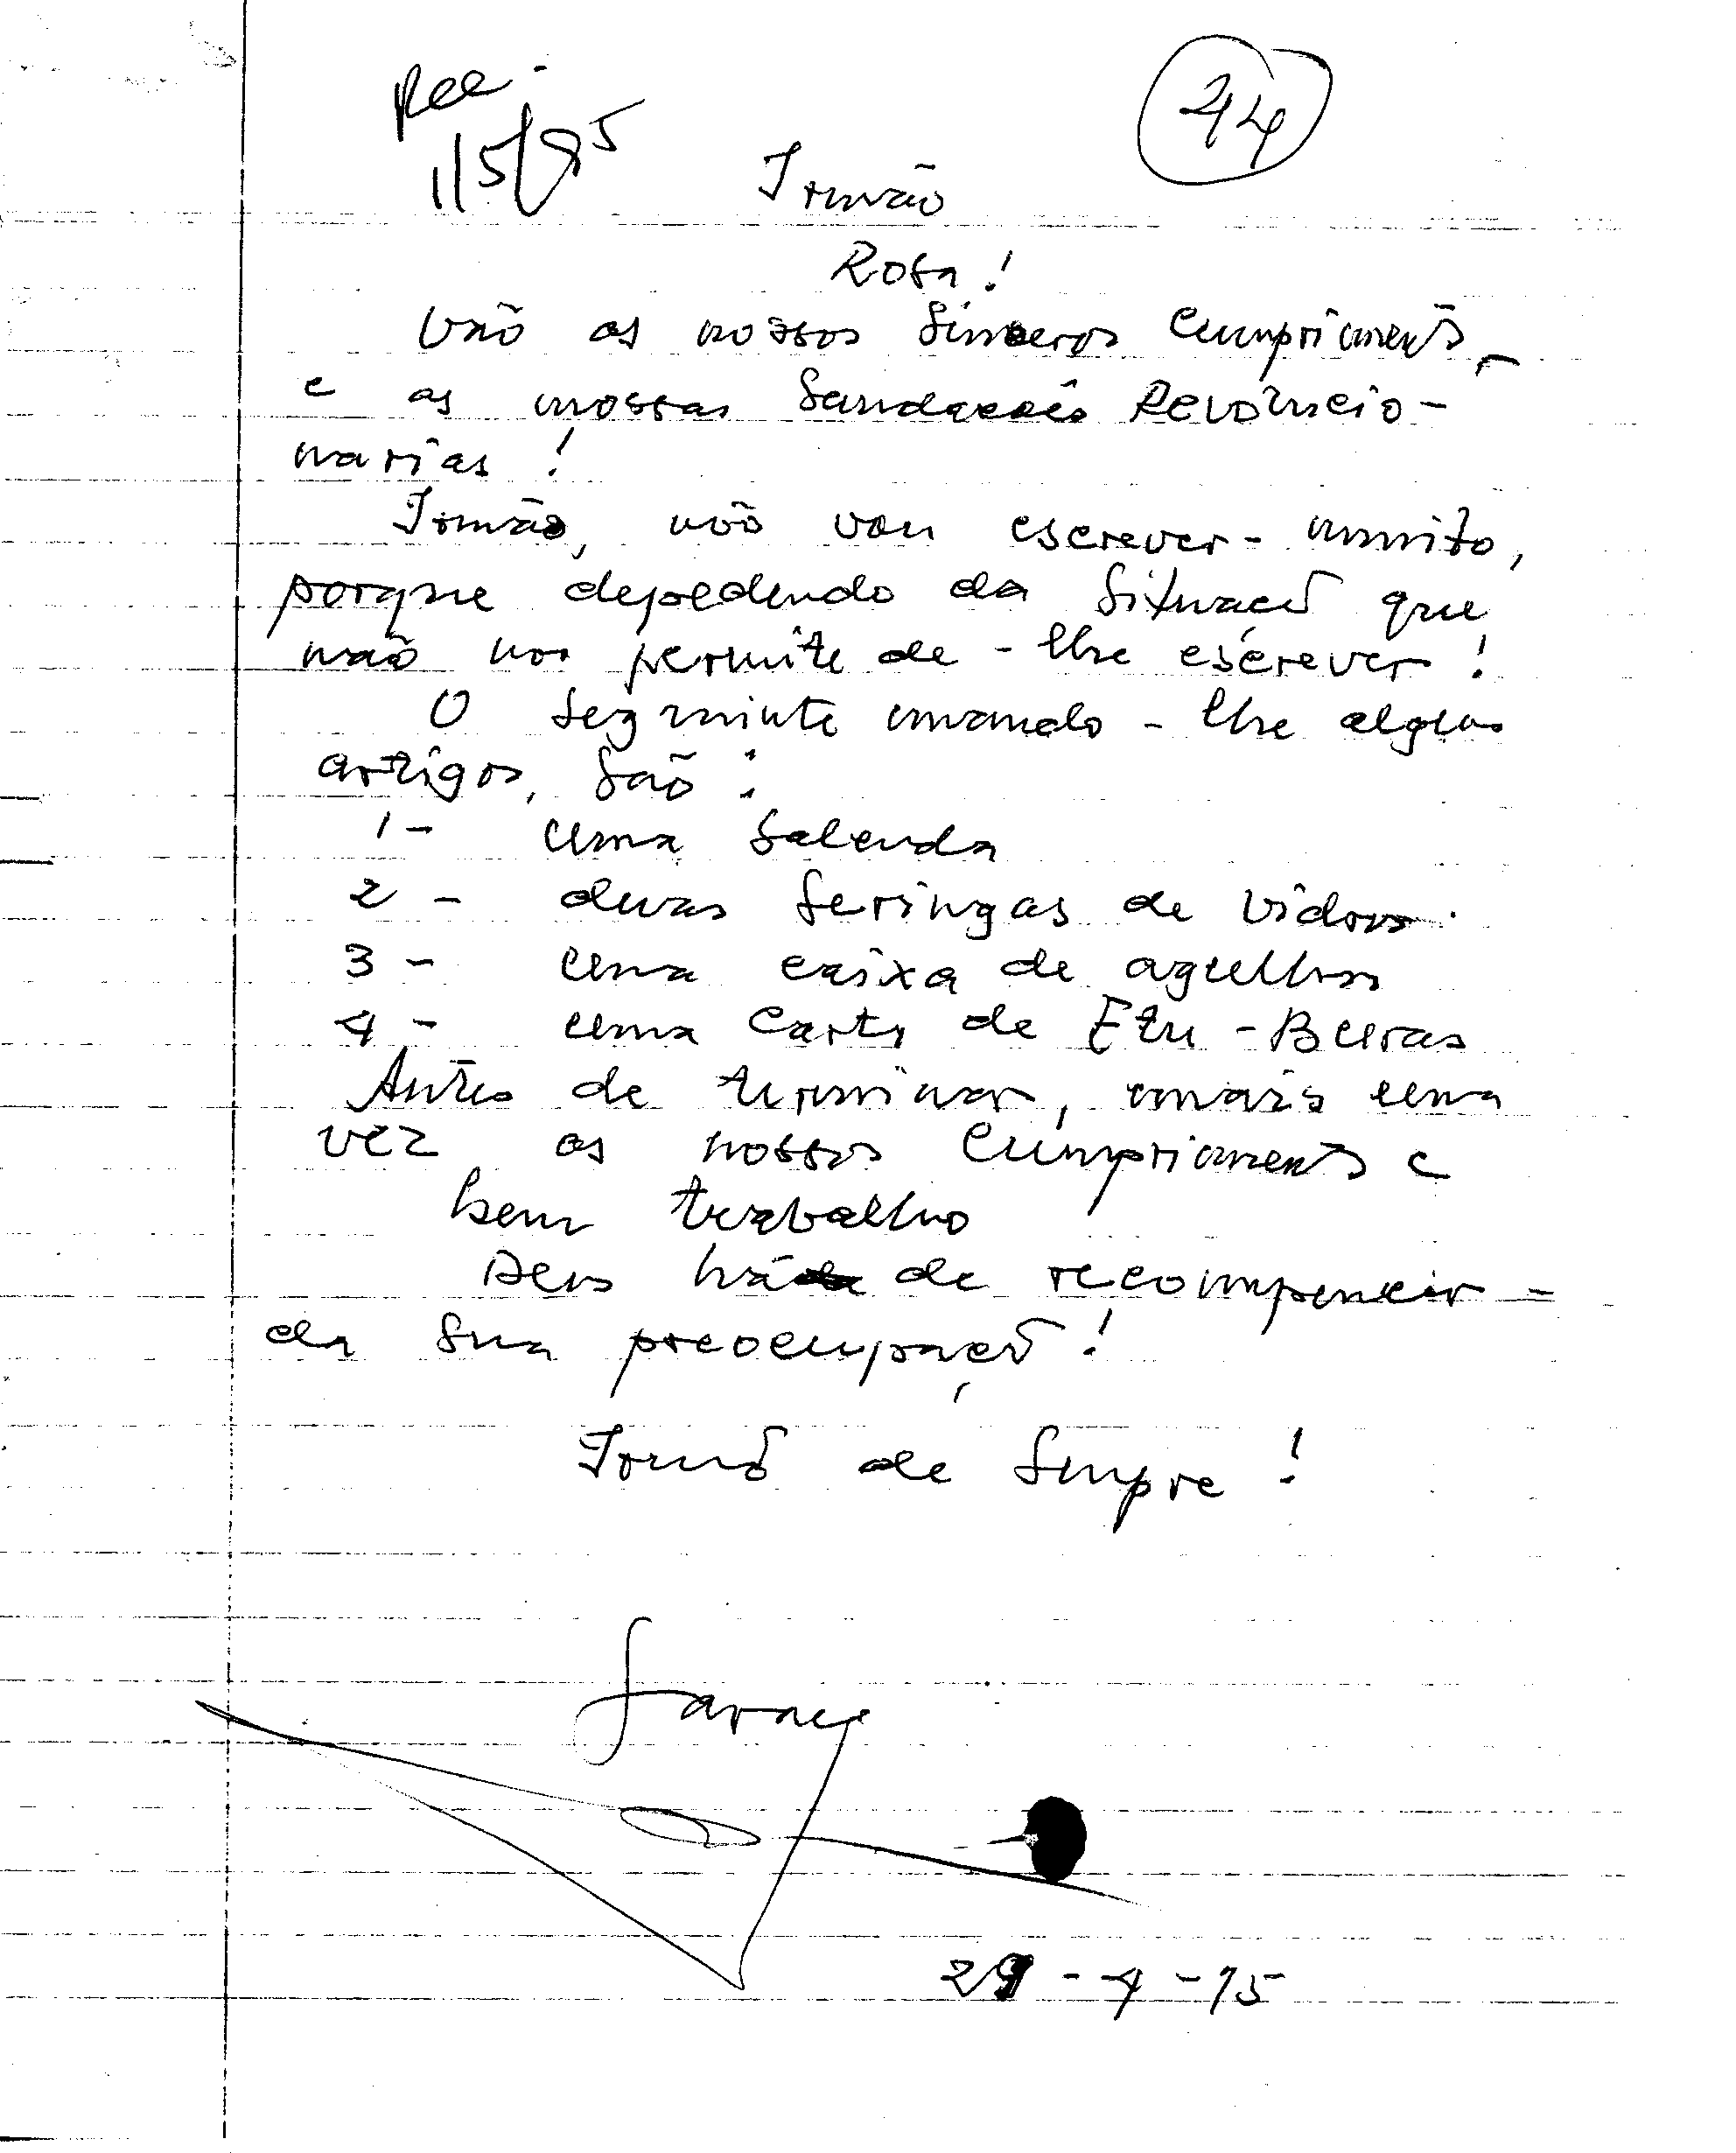 Rec.
1/5/95
44
Irmão
Rosa!
Vão os nossos sinceros cumprimentos
e as nossas Saudações Revolucio-
narias!
Irmão, não vou escrever-muito,
porque depedendo da Situação que
não nos permite de-lhe escrever!
O seguinte mando-lhe alguns
artigos, são:
1- uma Salenda
2- duas Seringas de Vidros.
3- uma caixa de agulhas
4- uma Carta de Etu-Beiras
Antes de terminar, mais uma
vez os nossos Cumprimentos e
bem trabalho
Deus há de recompensar-
da Sua preocupação!
Irmão de Sempre!
29-4-95